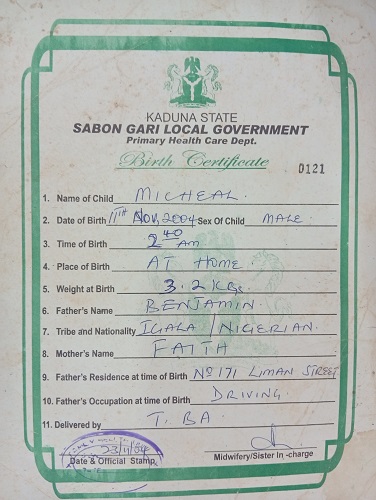 KADUNA STATE
SABON GARI LOCAL GOVERNMENT
Primary Health Care Dept.
Birth Certificate
0121
1. Name of Child MICHEAL.
2. Date of Birth 11TH NOV, 2004 Sex Of Child MALE.
3. Time of Birth 2 40 AM
4. Place of Birth AT HOME.
5. Weight at Birth 3.2 KGs
6. Father's Name BENJAMIN.
7. Tribe and Nationality IGALA / NIGERIAN.
8. Mother's Name FAITH
9. Father's Residence at time of Birth No 171 LIMAN STREET
10. Father's Occupation at time of Birth DRIVING
11. Delivered by T. BA
23/11/04
Date & Official Stamp
Midwifery/Sister In -charge